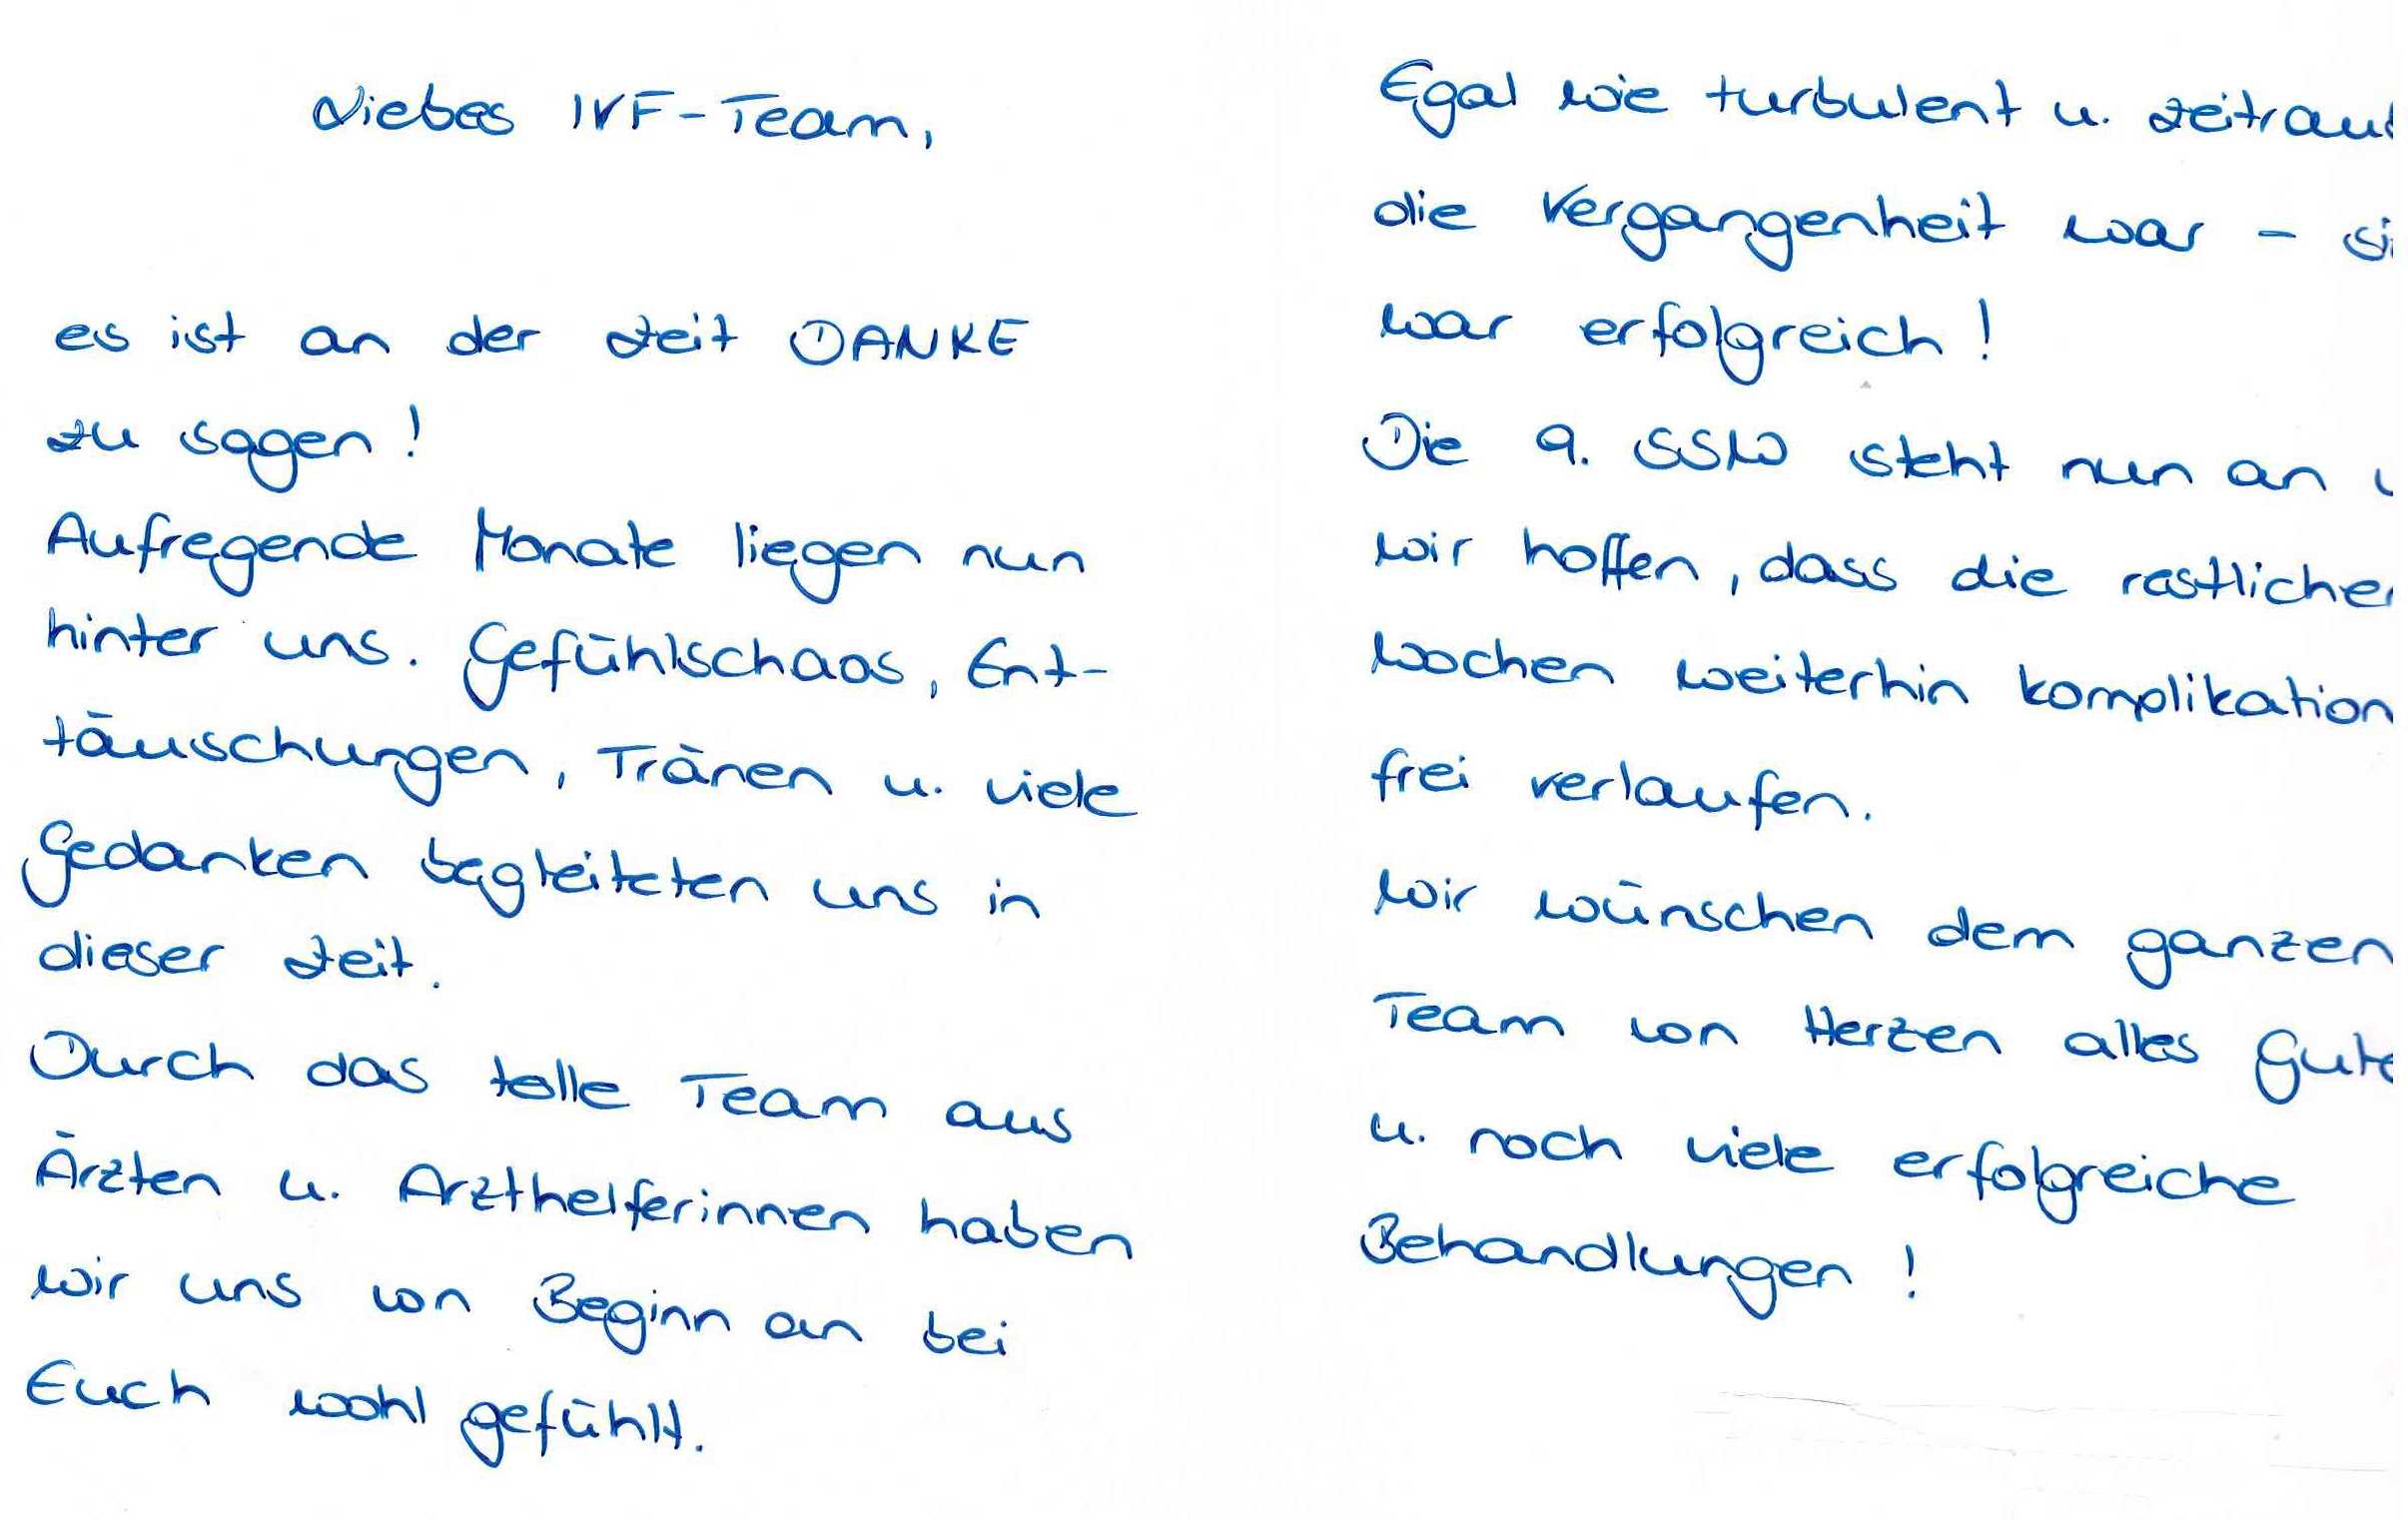 Liebes IVF-Team,
es ist an der Zeit DANKE
zu sagen!
Aufregende Monate liegen nun
hinter uns. Gefühlschaos, Ent-
täuschungen, Tränen u. viele
Gedanken begleiteten uns in
dieser Zeit.
Durch das tolle Team aus
Ärzten u. Arzthelferinnen haben
wir uns von Beginn an bei
Euch wohl gefühlt.
Egal wie turbulent u.
die Vergangenheit war -
war erfolgreich!
Die 9. SSW steht nun an
wir hoffen, dass die
Wochen weiterhin komplikation
frei verlaufen.
Wir wünschen dem ganzen
Team von Herzen alles Gute
u. noch viele erfolgreiche
Behandlungen!